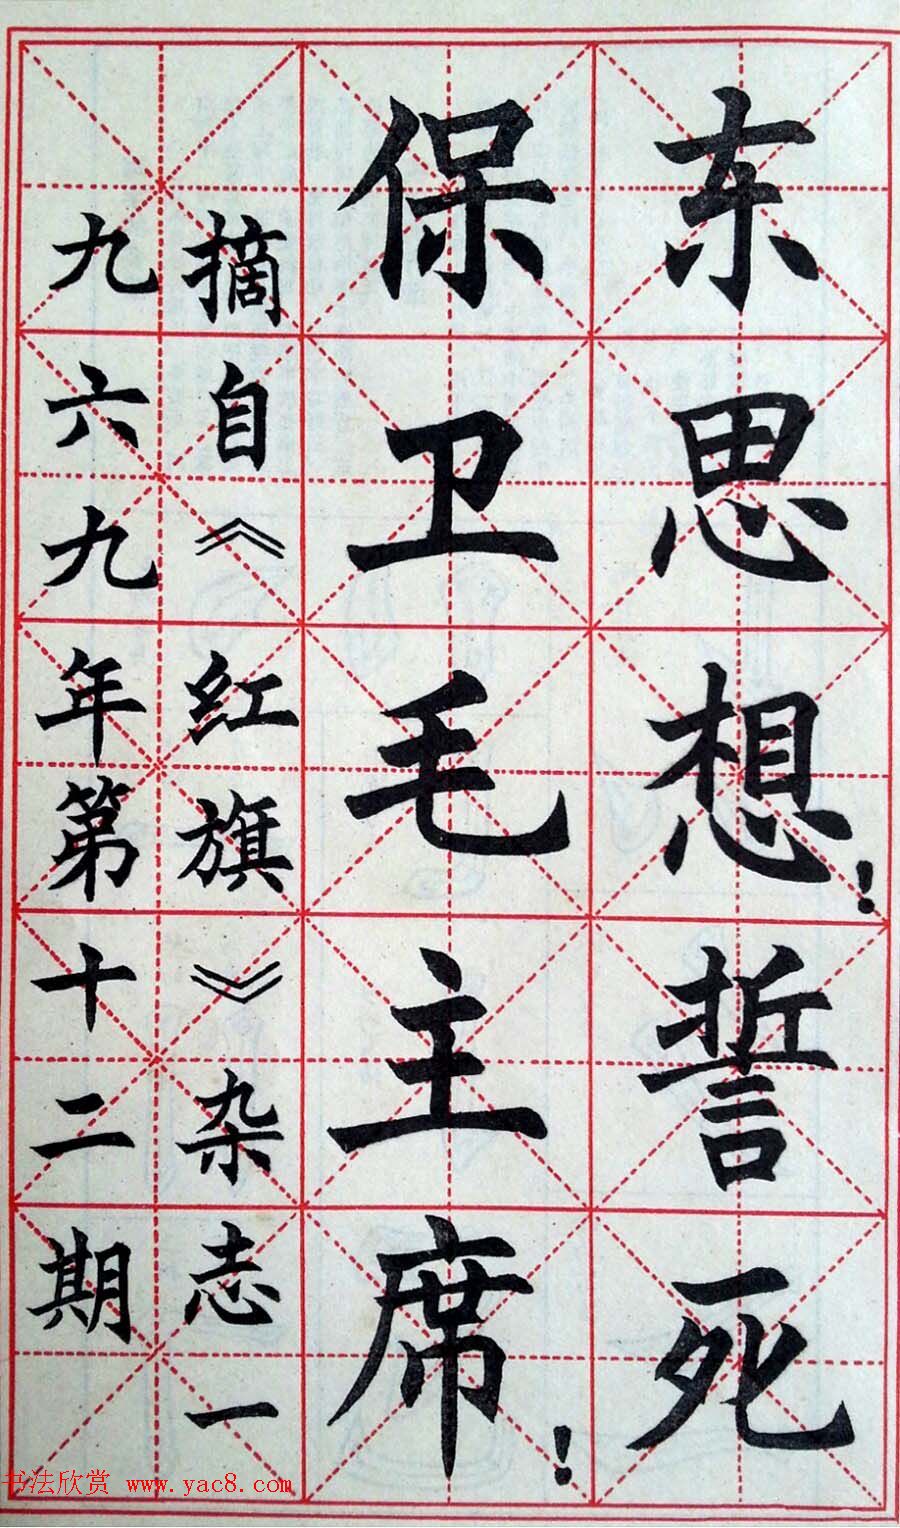 东思想！誓死
保卫毛主席！
摘自《红旗》杂志一
九六九年第十二期
书法欣赏 www.yac8.com